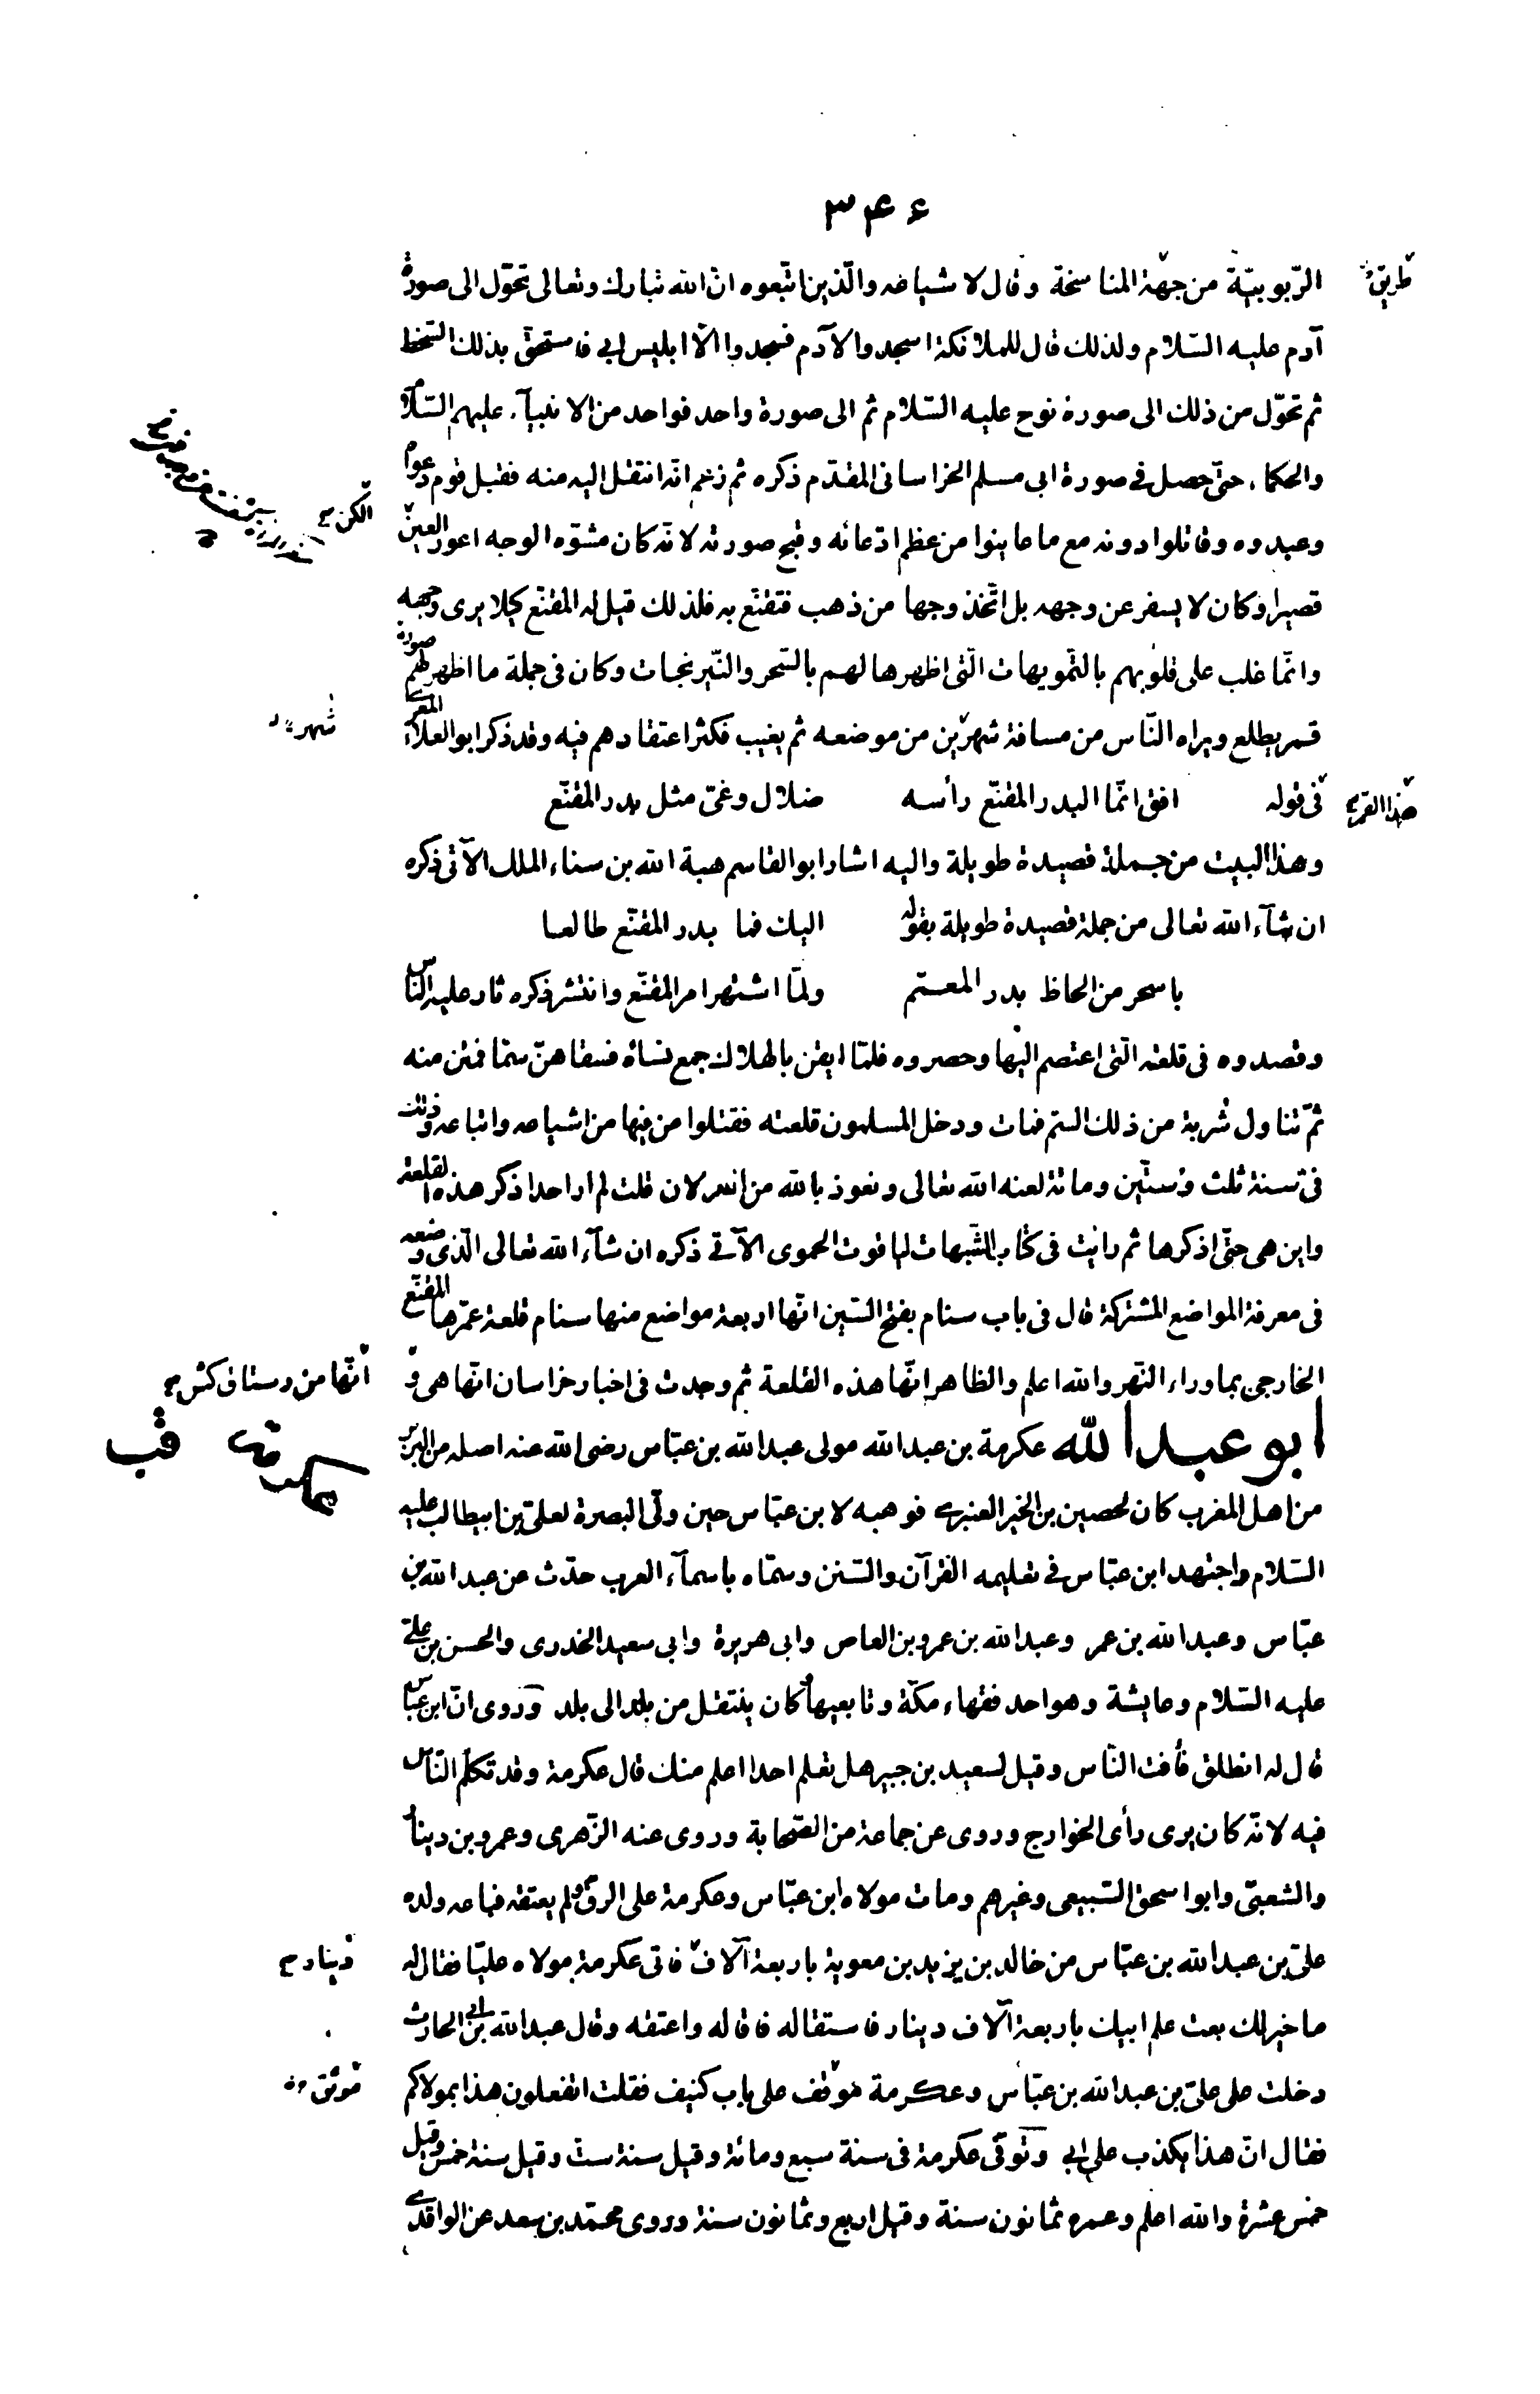 ٣٤٤
الرّبوبيّة من جهة المناسخة وقال لاشياعه والّذين اتّبعوه انّ الله تبارك وتعالى تحوّل الى صورة
طريق
آدم عليه السّلام ولذلك قال للملائكة اسجدوا لآدم فسجدوا الّا ابليس ابى فاستحق بذلك السّخط
ثم تحوّل من ذلك الى صورة نوح عليه السّلام ثم الى صورة واحد فواحد من الانبيآء عليهم السّلام
والحكماء حتّى حصل فى صورة ابى مسلم الخراسانى المقدّم ذكره ثم زعم انّه انتقل اليه منه فقبل قوم دعواه
الكن
وعبدوه وقاتلوا دونه مع ما عاينوا من عظم ادّعائه وقبح صورته لانّه كان مشوّه الوجه اعور العين
قصيرا وكان لا يسفر عن وجهه بل اتّخذ وجها من ذهب فتقنّع به فلذلك قيل له المقنّع كيلا يرى وجهه
وانّما غلب على قلوبهم بالتّمويهات الّتى اظهرها لهم بالسّحر والنّيرنجات وكان فى جملة ما اظهر لهم صورة
قمر يطلع ويراه النّاس من مسافة شهرين من موضعه ثم يغيب فكثر اعتقادهم فيه وقد ذكر ابو العلاء المعرى
شهر
هذا القمر
فى قوله افق انّما البدر المقنّع رأسه ضلال وغىّ مثل بدر المقنّع
وهذا البيت من جملة قصيدة طويلة واليه اشار ابو القاسم هبة الله بن سناء الملك الآتى ذكره
ان شآء الله تعالى من جملة قصيدة طويلة بقوله اليك فما بدر المقنّع طالعا
باسحر من الحاظ بدر المعمّم ولمّا اشتهر امر المقنّع وانتشر ذكره ثار عليه النّاس
وقصدوه فى قلعته الّتى اعتصم اليها وحصروه فلمّا ايقن بالهلاك جمع نساءه فسقاهنّ سمّا فمتن منه
ثمّ تناول شربة من ذلك السّم فمات ودخل المسلمون قلعته فقتلوا من فيها من اشياعه واتباعه وذلك
فى سنة ثلث وستّين ومائة لعنه الله تعالى ونعوذ بالله من الخذلان قلت لم ار احدا ذكر هذه القلعة
واين هى حتّى اذكرها ثم رايت فى كتاب الشّبهات لياقوت الحموى الآتى ذكره ان شآء الله تعالى الّذى وضعه
فى معرفة المواضع المشتركة قال فى باب سنام بفتح السّين انّها اربعة مواضع منها سنام قلعة عمّرها المقنّع
الخارجى بماوراء النّهر والله اعلم والظاهر انّها هذه القلعة ثم وجدت فى اخبار خراسان انّها هى و
انّها من رستاق كش
ابو عبد الله عكرمة بن عبد الله مولى عبد الله بن عبّاس رضى الله عنه اصله من البربر
عكرمة
من اهل المغرب كان لحصين بن الخير العنبرى فوهبه لابن عبّاس حين ولّى البصرة لعلىّ بن ابيطالب عليه
السّلام واجتهد ابن عبّاس فى تعليمه القرآن والسّنن وسمّاه باسمآء العرب حدّث عن عبد الله بن
عبّاس وعبد الله بن عمر وعبد الله بن عمرو بن العاص وابى هريرة وابى سعيد الخدرى والحسن بن علىّ
عليه السّلام وعايشة وهو احد فقهاء مكّة وتابعيها كان ينتقل من بلد الى بلد وروى انّ ابن عبّاس
قال له انطلق فأفت النّاس وقيل لسعيد بن جبير هل تعلم احدا اعلم منك قال عكرمة وقد تكلّم النّاس
فيه لانّه كان يرى رأى الخوارج وروى عن جماعة من الصّحابة وروى عنه الزّهرى وعمرو بن دينار
والشعبىّ وابو اسحق السّبيعى وغيرهم ومات مولاه ابن عبّاس وعكرمة على الرقّ لم يعتقه فباعه ولده
علىّ بن عبد الله بن عبّاس من خالد بن يزيد بن معوية باربعة آلاف فاتى عكرمة مولاه عليّا فقال له
دينار
ما خير لك بعت علم ابيك باربعة آلاف دينار فاستقاله فاقاله واعتقه وقال عبد الله بن ابى الحارث
دخلت على علىّ بن عبد الله بن عبّاس وعكرمة موقف على باب كنيف فقلت اتفعلون هذا بمولاكم
موثق
فقال انّ هذا يكذب على ابى وتوفّى عكرمة فى سنة سبع ومائة وقيل سنة ستّ وقيل سنة خمس وقيل
خمس عشرة والله اعلم وعمره ثمانون سنة وقيل اربع وثمانون سنة وروى محمّد بن سعد عن الواقدى